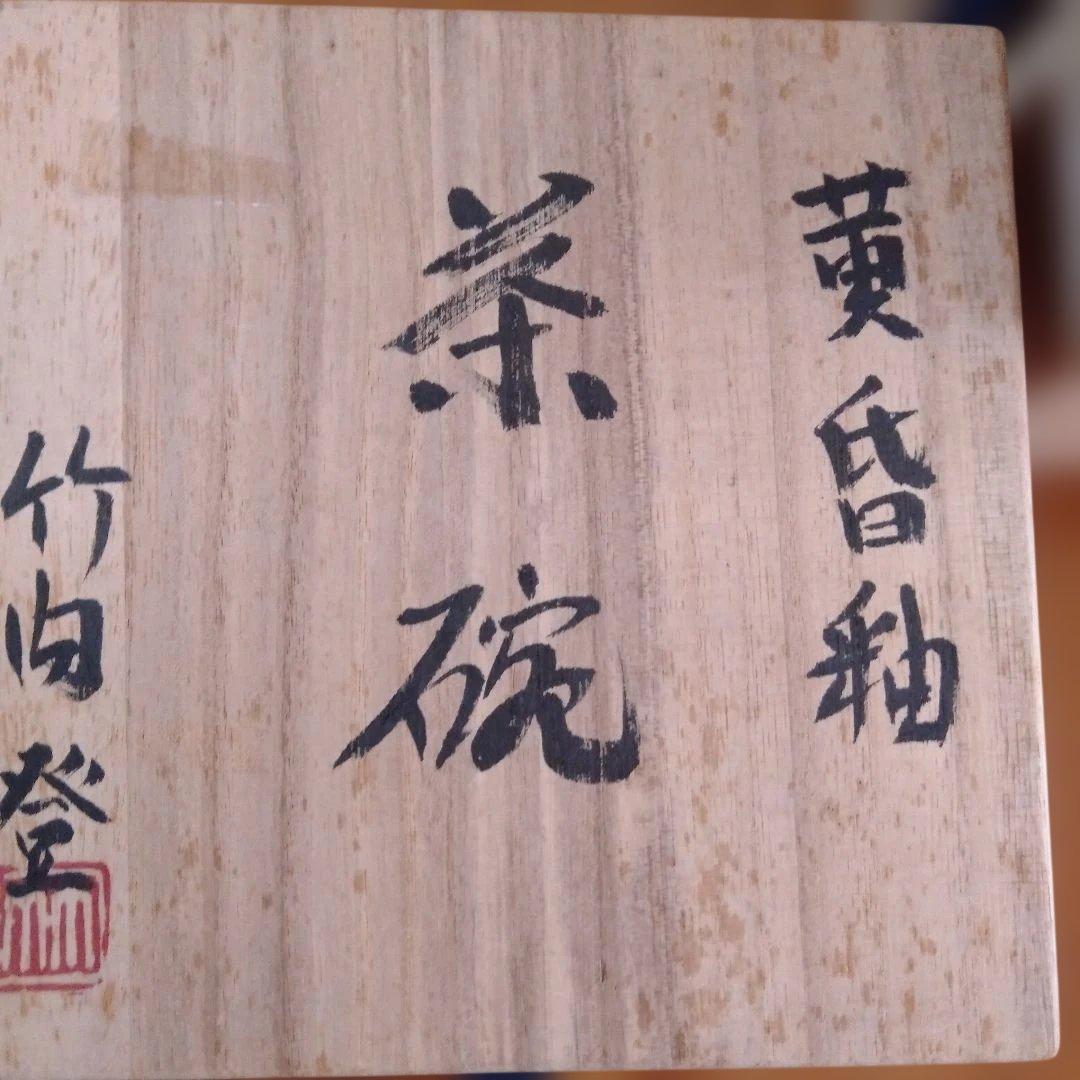 黄昏釉
茶碗
竹内登